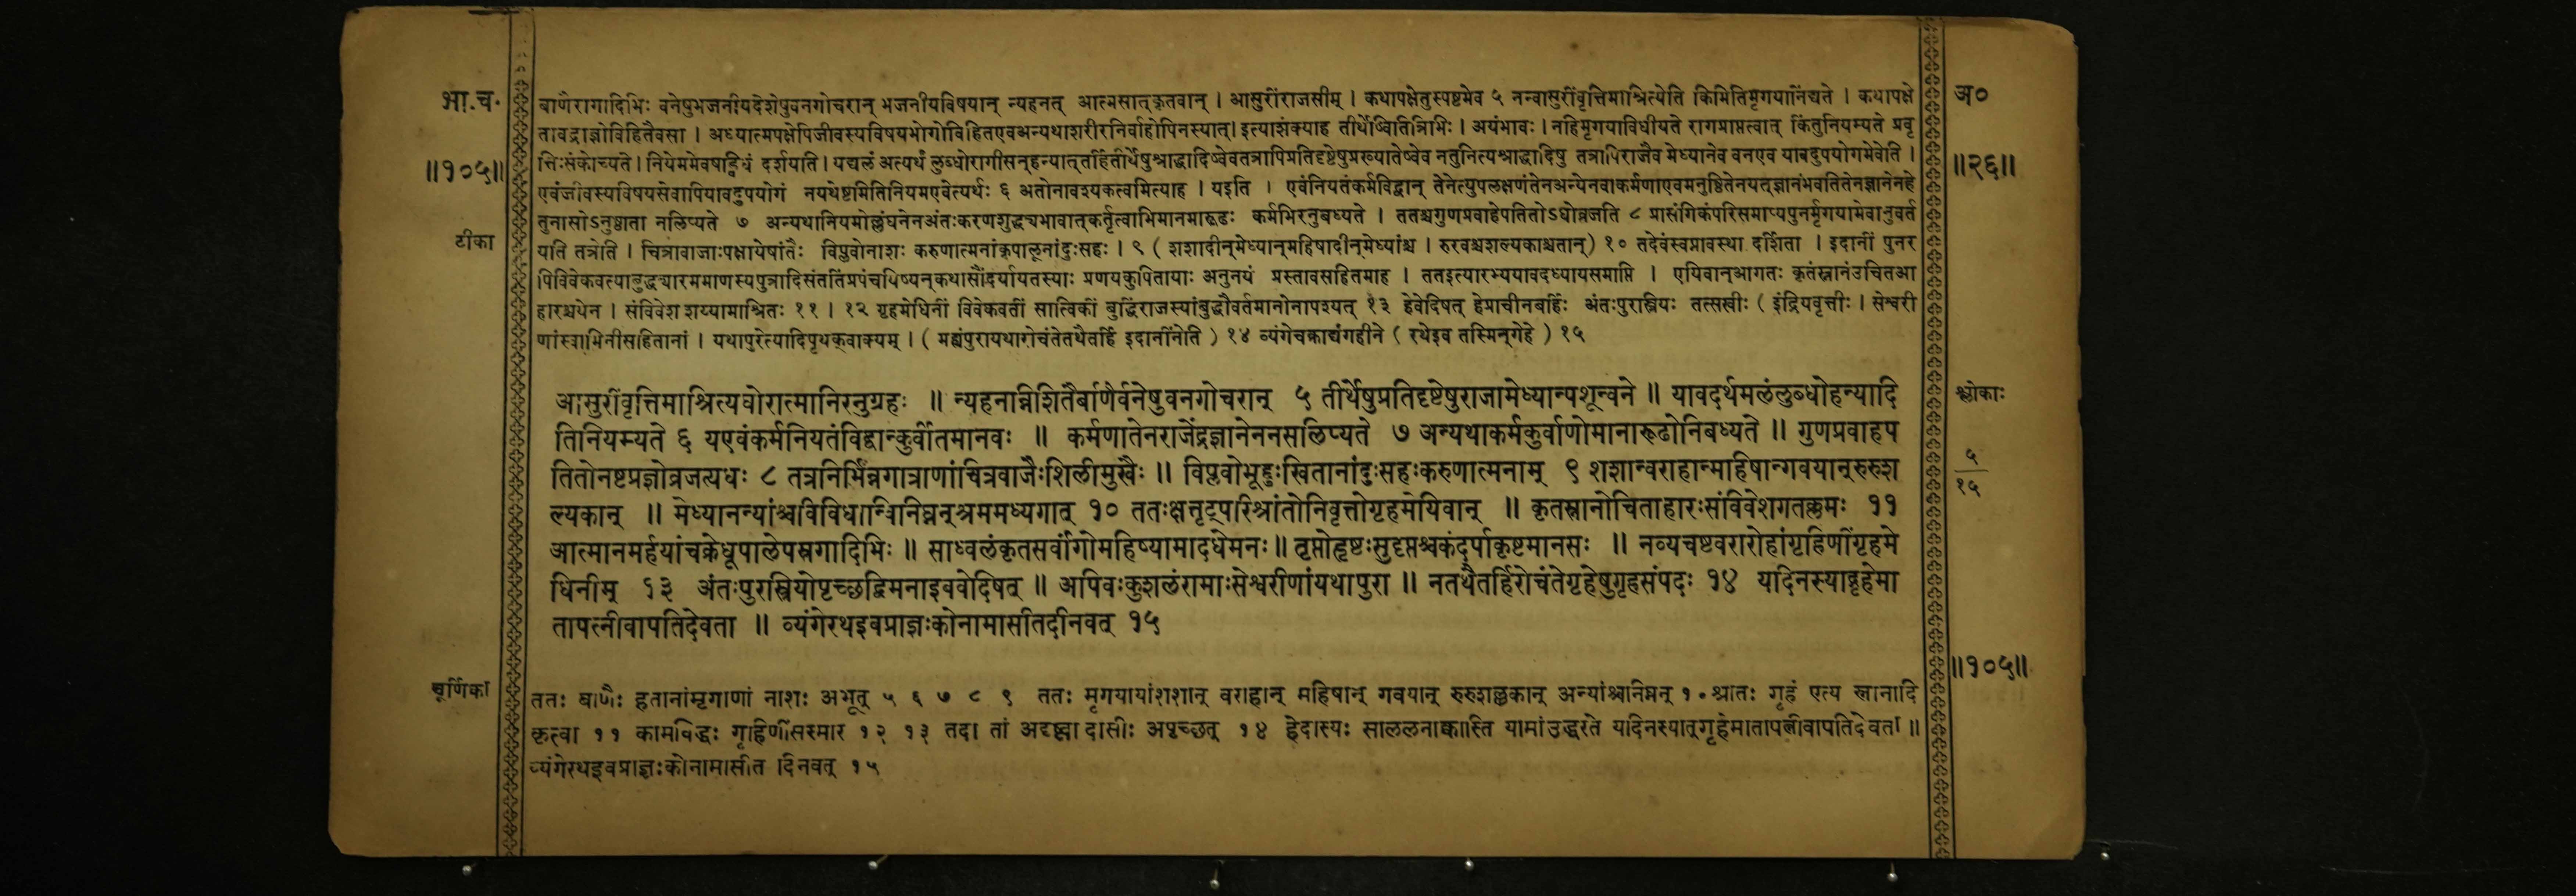 भा.च.
॥१०५॥
टीका
बाणैरागादिभिः वनेषुभजनीयदेशेषुवनगोचरान् भजनीयविषयान् न्यहनत् आत्मसात्कृतवान् । आसुरींराजसीम् । कथापक्षेतुस्पष्टमेव ५ नन्वासुरींवृत्तिमाश्रित्येति किमितिमृगयानिंद्यते । कथापक्षे
तावद्राज्ञोविहितैवसा । अध्यात्मपक्षेपिजीवस्यविषयभोगोविहितएवअन्यथाशरीरनिर्वाहोपिनस्यात्। इत्याशंक्याह तीर्थेष्वितित्रिभिः । अयंभावः । नहिमृगयाविधीयते रागप्राप्तत्वात् किंतुनियम्यते प्रवृ
त्तिःसंकोच्यते। नियममेवषड्विधं दर्शयति । यद्यलं अत्यर्थं लुब्धोरागीसन्हन्यात्तर्हितीर्थेषुश्राद्धादिष्वेवतत्रापिप्रतिदृष्टेषुप्रख्यातेष्वेव नतुनित्यश्राद्धादिषु तत्रापिराजैव मेध्यानेव वनएव यावदुपयोगमेवेति ।
एवंजीवस्यविषयसेवापियावदुपयोगं नयथेष्टमितिनियमएवेत्यर्थः ६ अतोनावश्यकत्वमित्याह । यइति । एवंनियतंकर्मविद्वान् तेनेत्युपलक्षणंतेनअन्येनवाकर्मणाएवमनुष्ठितेनयत्ज्ञानंभवतितेनज्ञानेनहे
तुनासोऽनुष्ठाता नलिप्यते ७ अन्यथानियमोल्लंघनेनअंतःकरणशुद्ध्यभावात्कर्तृत्वाभिमानमारूढः कर्मभिरनुबध्यते । ततश्चगुणप्रवाहेपतितोऽधोव्रजति ८ प्रासंगिकंपरिसमाप्यपुनर्मृगयामेवानुवर्त
यति तत्रेति । चित्रावाजाःपक्षायेषांतैः विप्लवोनाशः करुणात्मनांकृपालूनांदुःसहः । ९ ( शशादीन्मेध्यान्महिषादीन्मेध्यांश्च । रुरवश्चशल्यकाश्चतान्) १० तदेवंस्वप्नावस्था दर्शिता । इदानीं पुनर
पिविवेकवत्याबुद्ध्यारममाणस्यपुत्रादिसंततिंप्रपंचयिष्यन्कथासौंदर्यायतस्याः प्रणयकुपितायाः अनुनयं प्रस्तावसहितमाह । ततइत्यारभ्ययावदध्यायसमाप्ति । एयिवान्आगतः कृतंस्नानंउचितआ
हारश्चयेन । संविवेश शय्यामाश्रितः ११ । १२ गृहमेधिनीं विवेकवतीं सात्विकीं बुद्धिंराजस्यांबुद्धौवर्तमानोनापश्यत् १३ हेवेदिषत् हेप्राचीनबर्हिः अंतःपुरास्त्रियः तत्सखीः ( इंद्रियवृत्तीः । सेश्वरी
णांस्वामिनीसहितानां । यथापुरेत्यादिपृथक्वाक्यम् । ( मह्यंपुरायथारोचंतेतथैतर्हि इदानींनेति ) १४ व्यंगेचक्राद्यंगहीने ( रथेइव तस्मिन्गेहे ) १५
आसुरींवृत्तिमाश्रित्यघोरात्मानिरनुग्रहः ॥ न्यहनन्निशितैर्बाणैर्वनेषुवनगोचरान् ५ तीर्थेषुप्रतिदृष्टेषुराजामेध्यान्पशून्वने ॥ यावदर्थमलंलुब्धोहन्यादि
तिनियम्यते ६ यएवंकर्मनियतंविद्वान्कुर्वीतमानवः ॥ कर्मणातेनराजेंद्रज्ञानेननसलिप्यते ७ अन्यथाकर्मकुर्वाणोमानारूढोनिबध्यते ॥ गुणप्रवाहप
तितोनष्टप्रज्ञोव्रजत्यधः ८ तत्रनिर्भिन्नगात्राणांचित्रवाजैःशिलीमुखैः ॥ विप्लवोभूद्दुःखितानांदुःसहःकरुणात्मनाम् ९ शशान्वराहान्महिषान्गवयान्रुरुश
ल्यकान् ॥ मेध्यानन्यांश्चविविधान्विनिघ्नन्श्रममध्यगात् १० ततःक्षुत्तृट्परिश्रांतोनिवृत्तोगृहमेयिवान् ॥ कृतस्नानोचिताहारःसंविवेशगतक्लमः ११
आत्मानमर्हयांचक्रेधूपालेपस्रगादिभिः ॥ साध्वलंकृतसर्वांगोमहिष्यामादधेमनः ॥ तृप्तोहृष्टःसुदृप्तश्चकंदर्पाकृष्टमानसः ॥ नव्यचष्टवरारोहांगृहिणींगृहमे
धिनीम् १३ अंतःपुरास्त्रियोपृच्छद्विमनाइववेदिषत् ॥ अपिवःकुशलंरामाःसेश्वरीणांयथापुरा ॥ नतथैतर्हिरोचंतेगृहेषुगृहसंपदः १४ यदिनस्याद्गृहेमा
तापत्नीवापतिदेवता ॥ व्यंगेरथइवप्राज्ञःकोनामासीतदीनवत् १५
चूर्णिका
ततः बाणैः हतानांमृगाणां नाशः अभूत् ५ ६ ७ ८ ९ ततः मृगयायांशशान् वराहान् महिषान् गवयान् रुरुशल्लकान् अन्यांश्चनिघ्नन् १० श्रांतः गृहं एत्य स्नानादि
कृत्वा ११ कामविद्धः गृहिणींसस्मार १२ १३ तदा तां अदृष्ट्वा दासीः अपृच्छत् १४ हेदास्यः साललनाक्वास्ति यामांउद्धरते यदिनस्यात्गृहेमातापत्नीवापतिदेवता ॥
व्यंगेरथइवप्राज्ञःकोनामासीत दिनवत् १५
अ०
॥२६॥
श्लोकाः
५
१५
॥१०५॥